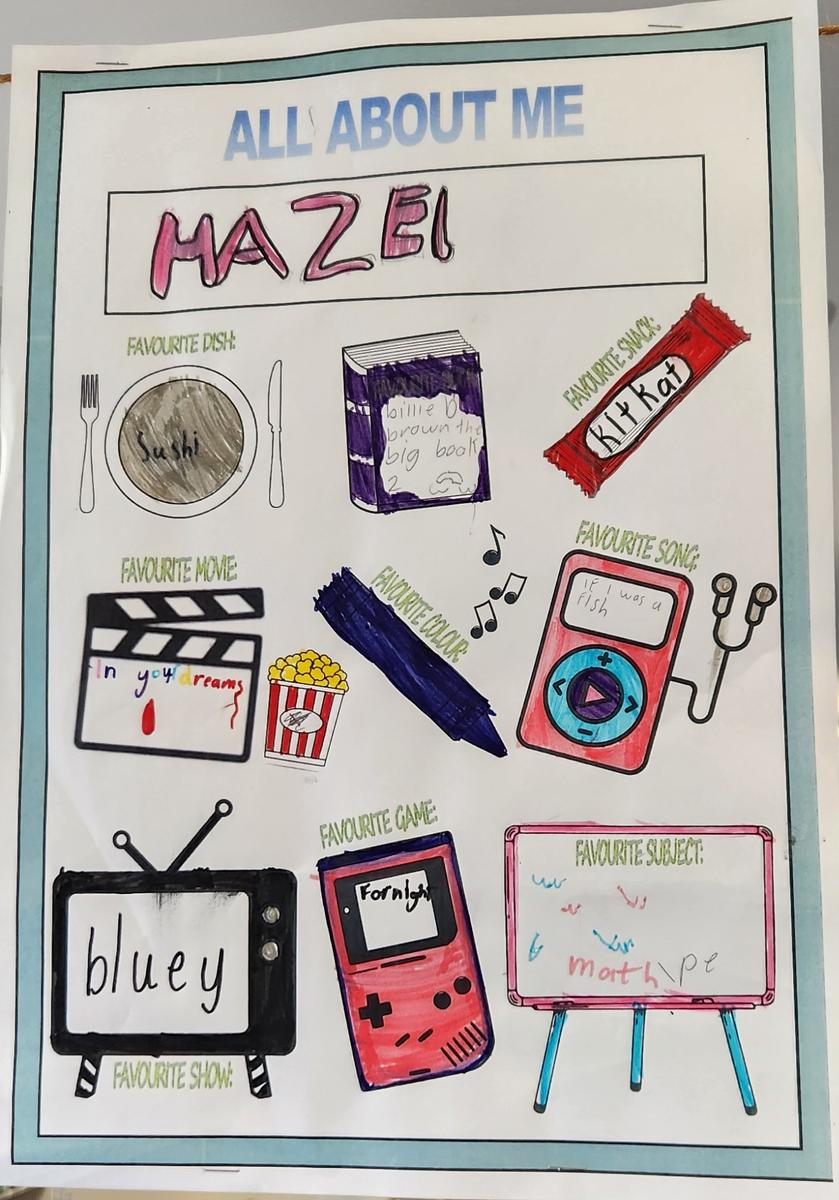 ALL ABOUT ME
HAZEl
FAVOURITE DISH:
Sushi
billie B
brown the
big book
2
FAVOURITE SNACK:
kitkat
FAVOURITE MOVIE:
In your dreams
FAVOURITE COLOUR:
FAVOURITE SONG:
If I was a
fish
bluey
FAVOURITE SHOW:
FAVOURITE GAME:
Fornight
FAVOURITE SUBJECT:
math\pe